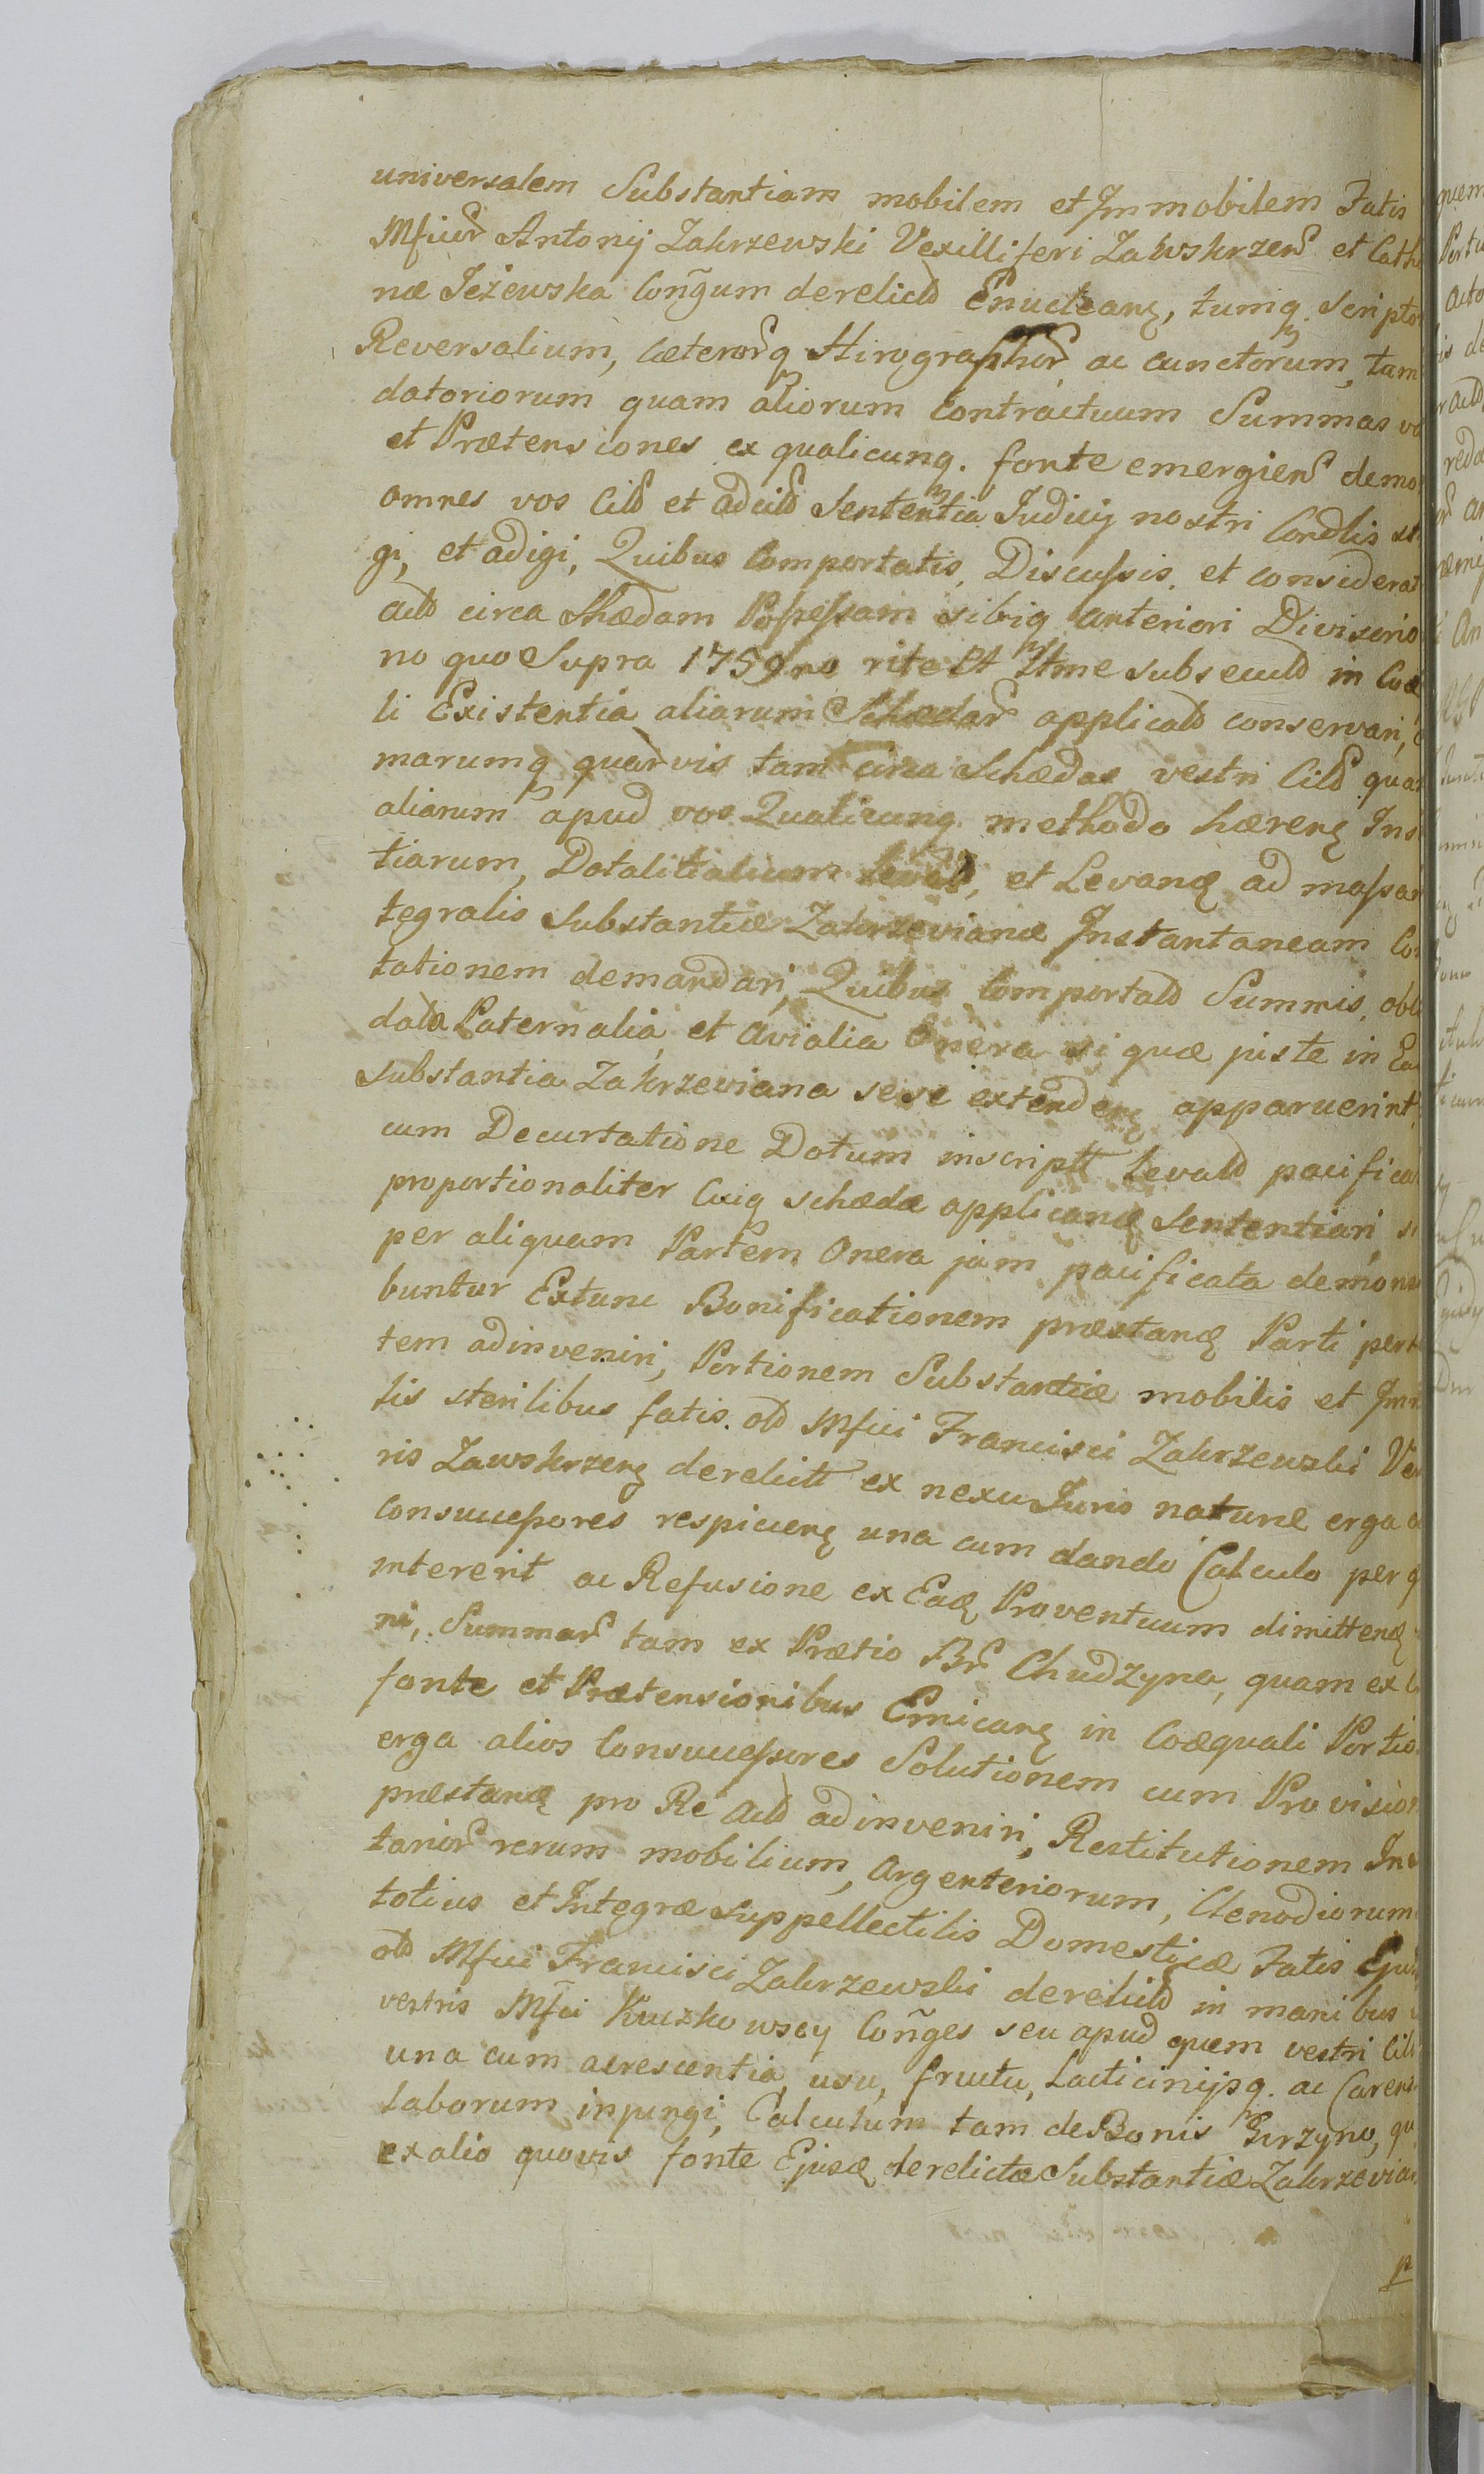 universalem Substantiam mobilem et Immobilem Fatis
Mficor Antonij Zakrzewski Vexilliferi Zawskrzen et Cath
næ Jeżewska Congum derelicto Enucleang, tumq scripto
Reversalium, Cæterorq Hirographor, ac cunctorum, tam
datoriorum quam aliorum Contractuum Summas
et Prætensiones ex qualicunq. fonte emergien demo
omnes vos Citt et adcitt Sententia Judicij nostri Condlis
gi, et adigi, Quibus Comportatis, Discussis, et considerat
actt circa Schædam Possessam sibiq anteriori Divisorio
no quo Supra 1759no rite et ttme subsecutt in Coæ
li Existentia aliarum Schedar applicatt conservari,
marumq quarvis tam circa Schædas vestri Citt qua
aliarum apud vos Qualicunq. methodo hæreng Ins
tiarum, Dotalitalium levatt, et Levang ad massa
tegralis Substantiæ Zakrzevianæ Instantaneam Co
tationem demandari, Quibus Comportatt Summis,
Paternalia, et Avialia Onera si quæ juste in Ea
substantia Zakrzeviana sese extendeng apparuerint,
cum Decurtatione Dotum inscriptt levatt pacifica
proportionaliter Cuiq schædæ applicang Sententiari,
per aliquam Partem Onera jam pacificata demons
buntur Extunc Bonificationem præstang Parti
tem adinveniri, Portionem Substantiæ mobilis et Imm
lis sterilibus fatis. ott Mfici Francisci Zakrzewski Ve
ris Zawskrzeng derelictt ex nexu Juris naturæ erga
Consuccessores respicieng una cum dando Calculo per
intererit ac Refusione ex Eag Proventuum dimitteng
ni, Summar tam ex Prætio Br Chudzyna, quam ex
fonte et Prætensionibus Emicang in Coæquali Portio
erga alios Consuccessores Solutionem cum Provision
præstang pro Re actt adinveniri, Restitutionem In
tarior rerum mobilium, Argenteriorum, Clenodiorum
totius et Integræ suppellectilis Domesticæ Fatis
ott Mfici Francisci Zakrzewski derelictt in manibus
vestris Mfci Kruszkowscy Conges seu apud quem vestri Citt
una cum acrescentia, usu, fructu, Lacticinijsq. ac Caren
laborum injungi, Calculum tam de Bonis Gurzyno,
ex alio quovis fonte Ejusg derelictæ Substantiæ Zakrzevian